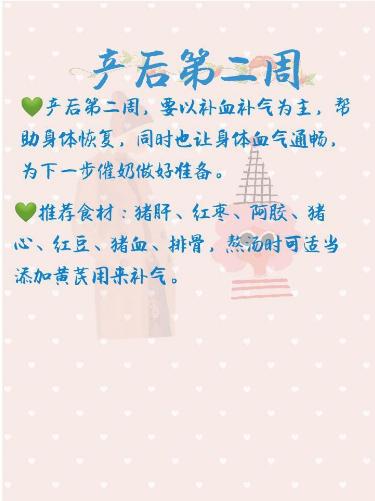 产后第二周
💚产后第二周，要以补血补气为主，帮
助身体恢复，同时也让身体血气通畅，
为下一步催奶做好准备。
💚推荐食材：猪肝、红枣、阿胶、猪
心、红豆、猪血、排骨，熬汤时可适当
添加黄芪用来补气。